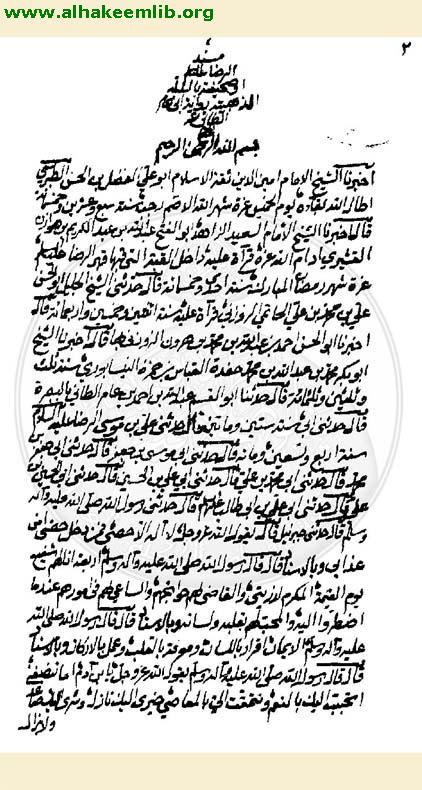 www.alhakeemlib.org
٢
مسند
الرضا عليه السلم
او صحيفته بالسلسلة
الذهبية رواية ابي القاسم
الطائي
بسم الله الرحمن الرحيم
اخبرنا الشيخ الامام امين الدين ثقة الاسلام ابو علي الفضل بن الحسن الطبرسي
اطال الله بقاءه يوم الخميس غرة شهر الله الاصم رجب سنة تسع وعشرين وخمسمائة
قال اخبرنا الشيخ الامام السعيد الزاهد ابو الفتح عبد الله بن عبد الكريم بن هوازن
القشيري ادام الله عزه قراءة عليه داخل القبة التي فيها قبر الرضا عليه السلم
غرة شهر رمضان المبارك سنة احدى وخمسمائة قال حدثني الشيخ الجليل ابو الحسن
علي بن محمد بن علي الحاتمي الزوزني قراءة عليه سنة اثنتين وخمسين واربعمائة قال
اخبرنا ابو الحسن احمد بن محمد بن هرون الزوزني بها قال اخبرنا الشيخ
ابو بكر محمد بن عبد الله بن محمد حفدة العباس بن حمزة النيسابوري سنة سبع
وثلثين وثلثمائة قال حدثنا ابو القسم عبد الله بن احمد بن عامر الطائي بالبصرة
قال حدثني ابي سنة ستين ومائتين قال حدثني علي بن موسى الرضا عليه السلام
سنة اربع وتسعين ومائة قال حدثني ابي موسى بن جعفر قال حدثني ابي جعفر بن
محمد قال حدثني ابي محمد بن علي قال حدثني ابي علي بن الحسين قال حدثني ابي الحسين بن
علي قال حدثني ابي علي بن ابي طالب عليهم السلم قال حدثني رسول الله صلى الله عليه وآله
وسلم قال حدثني جبرئيل قال يقول الله عز وجل لا اله الا الله حصني فمن دخل حصني امن
عذابي وبالاسناد قال قال رسول الله صلى الله عليه وآله وسلم اربعة انا لهم شفيع
يوم القيمة المكرم لذريتي والقاضي لهم حوائجهم والساعي لهم في امورهم عندما
اضطروا اليه والمحب لهم بقلبه ولسانه وبالاسناد قال قال رسول الله صلى الله
عليه وآله وسلم الايمان اقرار باللسان ومعرفة بالقلب وعمل بالاركان وبالاسناد
قال قال رسول الله صلى الله عليه وآله وسلم يقول الله عز وجل يا بن آدم اما تنصفني
اتحبب اليك بالنعم وتتمقت الي بالمعاصي خيري اليك نازل وشرك الي صاعد
ولا يزال